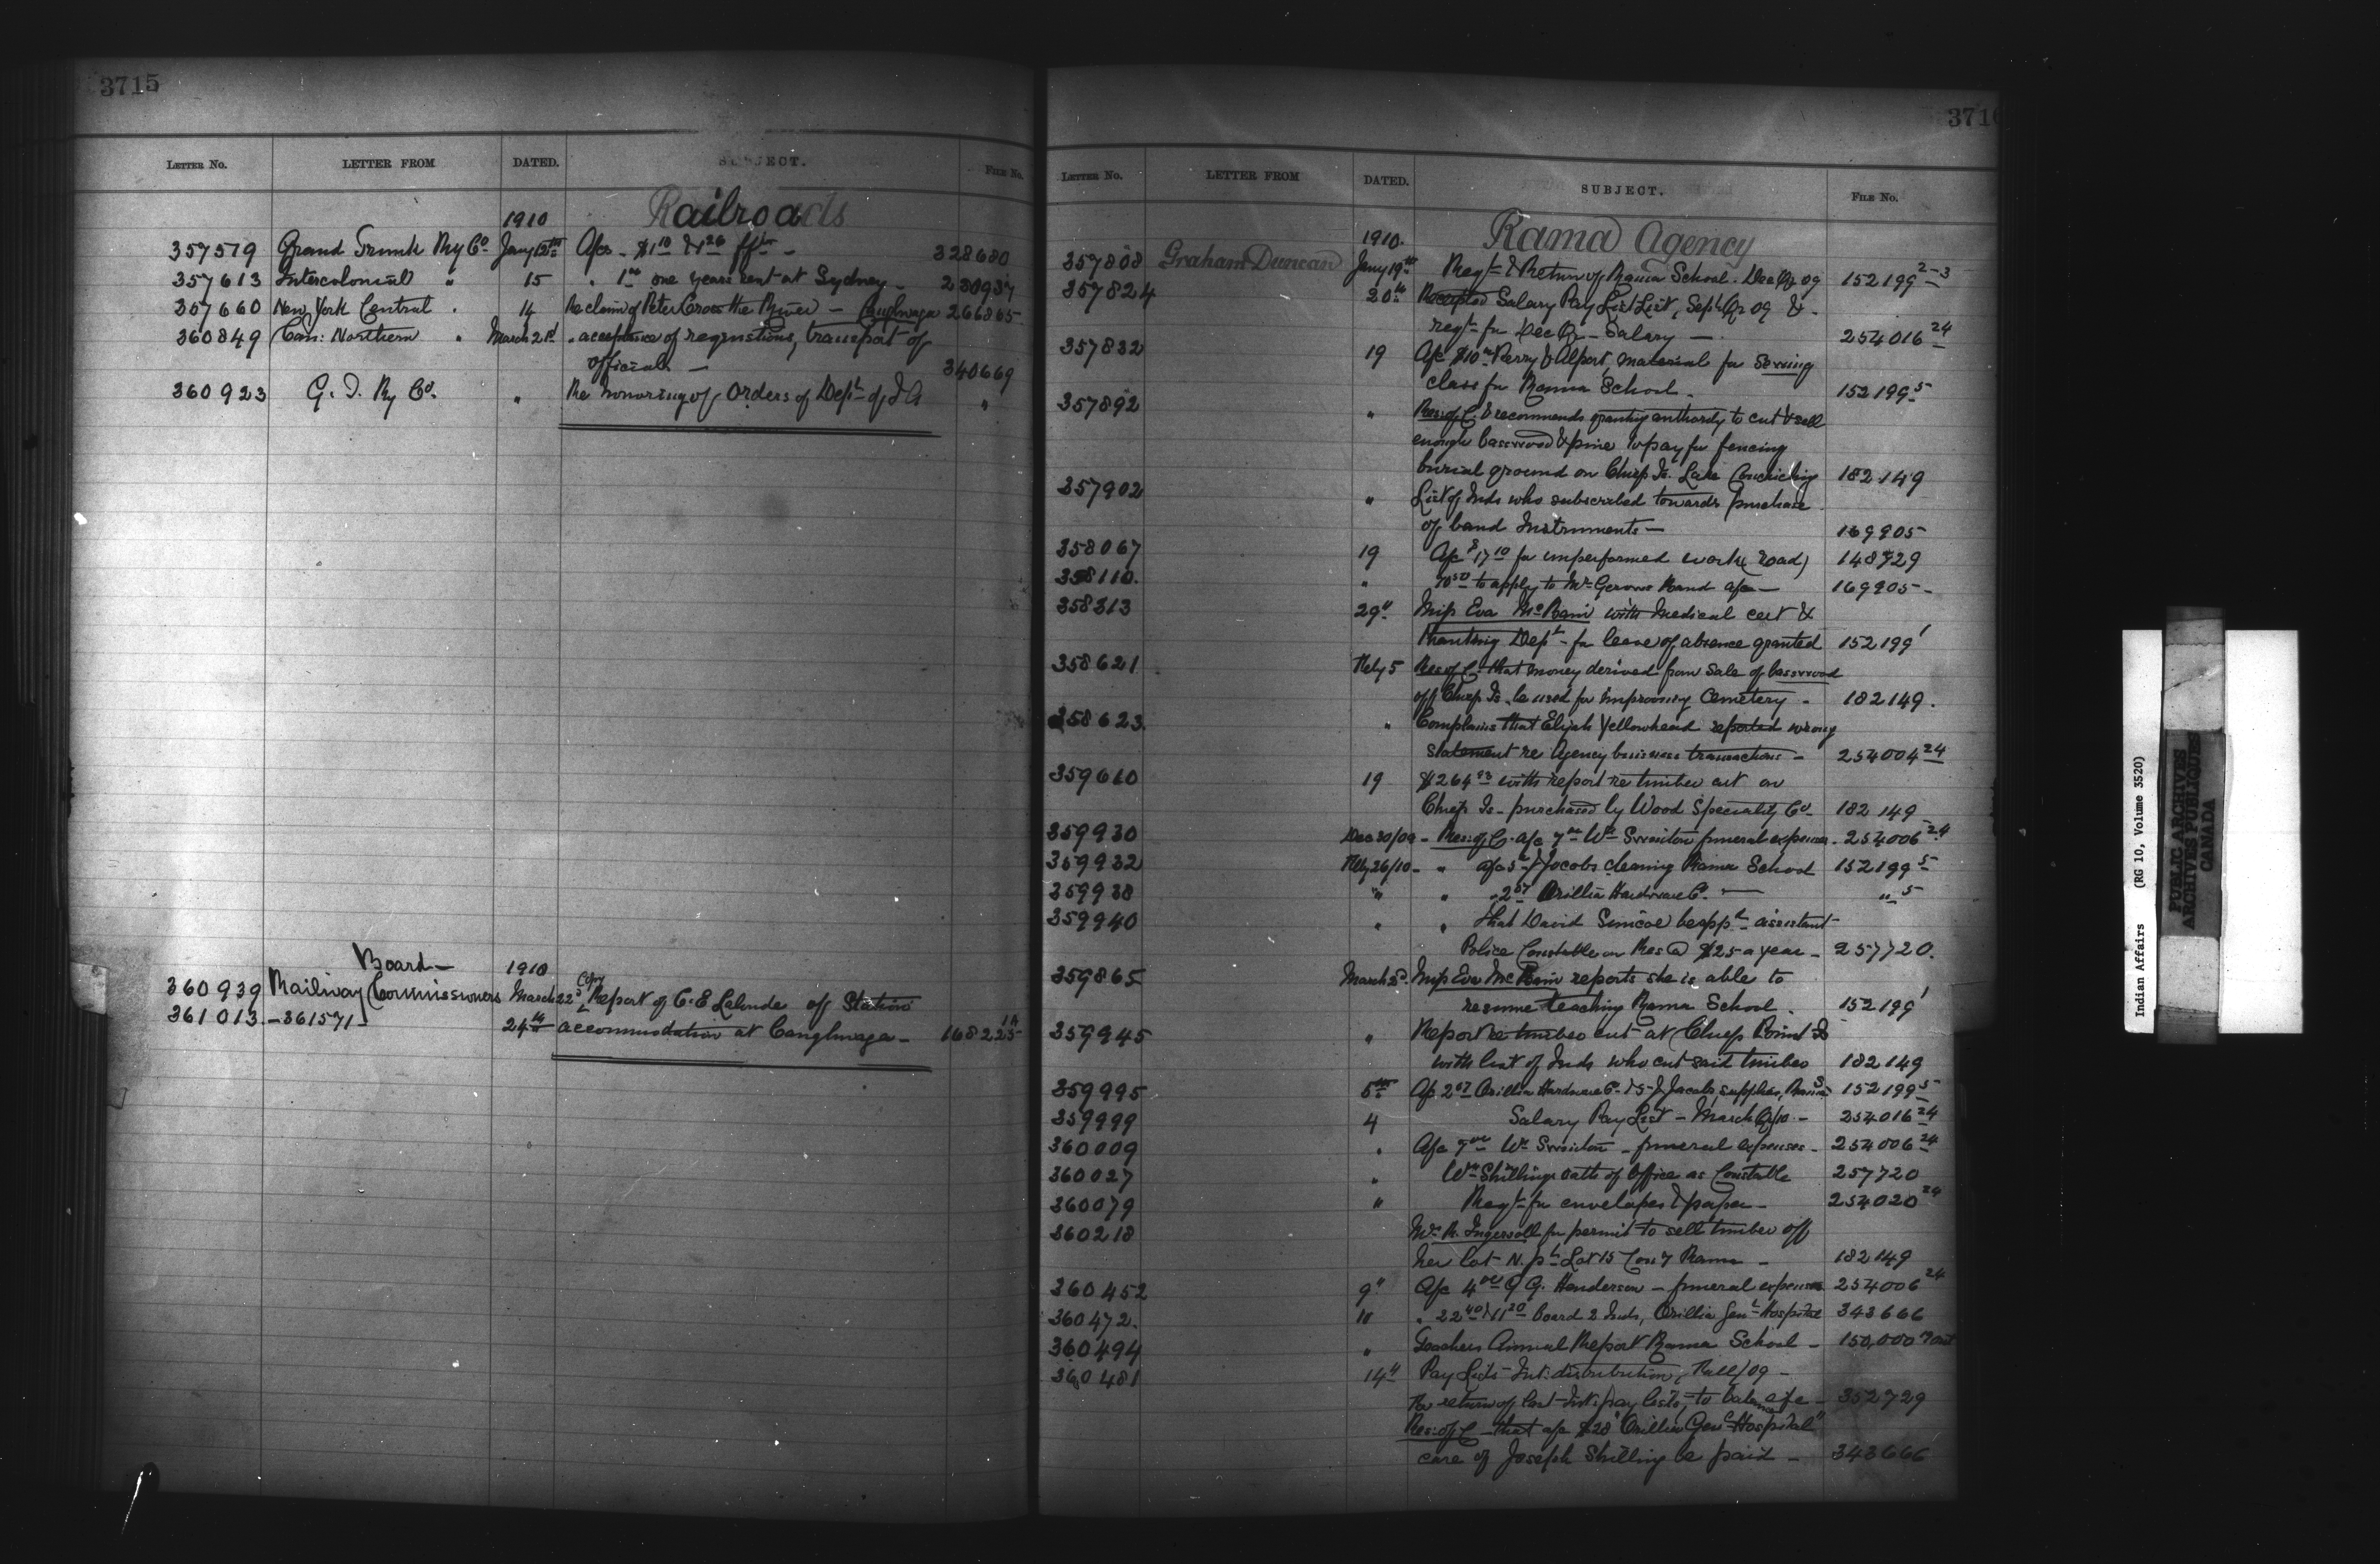 3715
LETTER NO. LETTER FROM DATED. SUBJECT. FILE No.
Railroads
1910
357579 Grand Trunk Ry Co. Jany 12th A/cs - $1.10 & 1.26 frt - 328680
357613 Intercolonial " 15 " 1.00 one years rent at Sydney - 230937
357660 New York Central . 14 Re claim of Peter Cross the River - Caughnaga 266865
360849 Can: Northern " March 21st " acceptance of requistions, transport of
officials - 340669
360923 G. T. Ry Co. " Re honoring of Orders of Dept of I A "
Board - 1910
360939 Railway Commissioners March 22d Copy Report of C. E Lalonde off Station
361013 - 361571 - 24th accommodation at Caughnaga - 168225 1A
3716
LETTER NO. LETTER FROM DATED. SUBJECT. FILE No.
Rama Agency
1910.
357808 Graham Duncan Jany 19th Reqt & Return of Rama School. Dec Qr 09 152199 2-3
357824 20th Receipted Salary Pay List, Sept Qr 09 & -
reqt for Dec Qr - Salary - 254016 24
357832 19 A/c $10 Perry & Alport, material for Sewing
class for Rama School - 152199 5
357892 " Res: of C. & recommends granting authority to cut & sell
enough basswood & pine to pay for fencing
burial ground on Chief Is. Lake Couchiching 182149
357902 " List of Inds who subscribed towards purchase
of band Instruments - 169905
358067 19 A/c $17.10 for unperformed work (road) 148729
358110. " to apply to Band a/c - 169905 -
358313 29" Miss Eva McBain with medical cert &
thanking Dept - for leave of absence granted 152199 1
358621 Feby 5 Res of C. that money derived from sale of basswood
off Chief Is. be used for improving Cemetery - 182149.
358623. " Complains that Elijah Yellowhead reported wrong
statement re Agency business transactions - 254004 24
359660 19 $264.93 with report re timber cut on
Chief Is - purchased by Wood Speciality Co - 182149
359930 Dec 30/09 - Res: of C. a/c 7.00 Wm Swinton funeral expenses - 254006 24
359932 Feby 26/10 - " a/c 5 - J Jacobs cleaning Rama School 152199 5
359938 " " " 2.57 Orillia Hardware Co. - " 5
359940 " " that David Simcoe be appt assistant
Police Constable on Res @ $25 a year - 257720.
359865 March 2d. Miss Eva McBain reports she is able to
resume teaching Rama School. 152199 1
359945 " Report re timber cut at Chief Point Is
with list of Inds who cut said timber 182149
359995 5th A/c 2.57 Orillia Hardware Co - & 5 - J Jacobs, supplies, Rama S. 152199 5
359999 4 Salary Pay List - March Qr/10 - 254016 24
360009 " A/c 7.00 Wm Swinton - funeral expenses - 254006 24
360027 " Wm Shillings oath of Office as Constable 257720
360079 " Reqt for envelopes & paper - 254020 24
360218 Mrs R. Ingersoll for permit to sell timber off
her lot N. pt Lot 15 Con 7 Rama - 182149
360452 9" A/c 4.00 G G. Henderson - funeral expenses 254006 24
360472. 10 " 22.40 & 11.20 board 2 Inds, Orillia Genl Hospital 343666
360494 " Teachers Annual Report Rama School - 150,000
360481 14th Pay Lists - Int: distribution, Fall/09 -
For return of last Int: pay lists, to balance a/c - 352729
Res: of C - that a/c $28 "Orillia Genl Hospital"
care of Joseph Shilling be paid - 343666
Indian Affairs (RG 10, Volume 3520)
PUBLIC ARCHIVES
ARCHIVES PUBLIQUES
CANADA